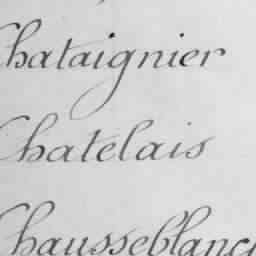 Chataignier
Chatelais
Chausseblanc